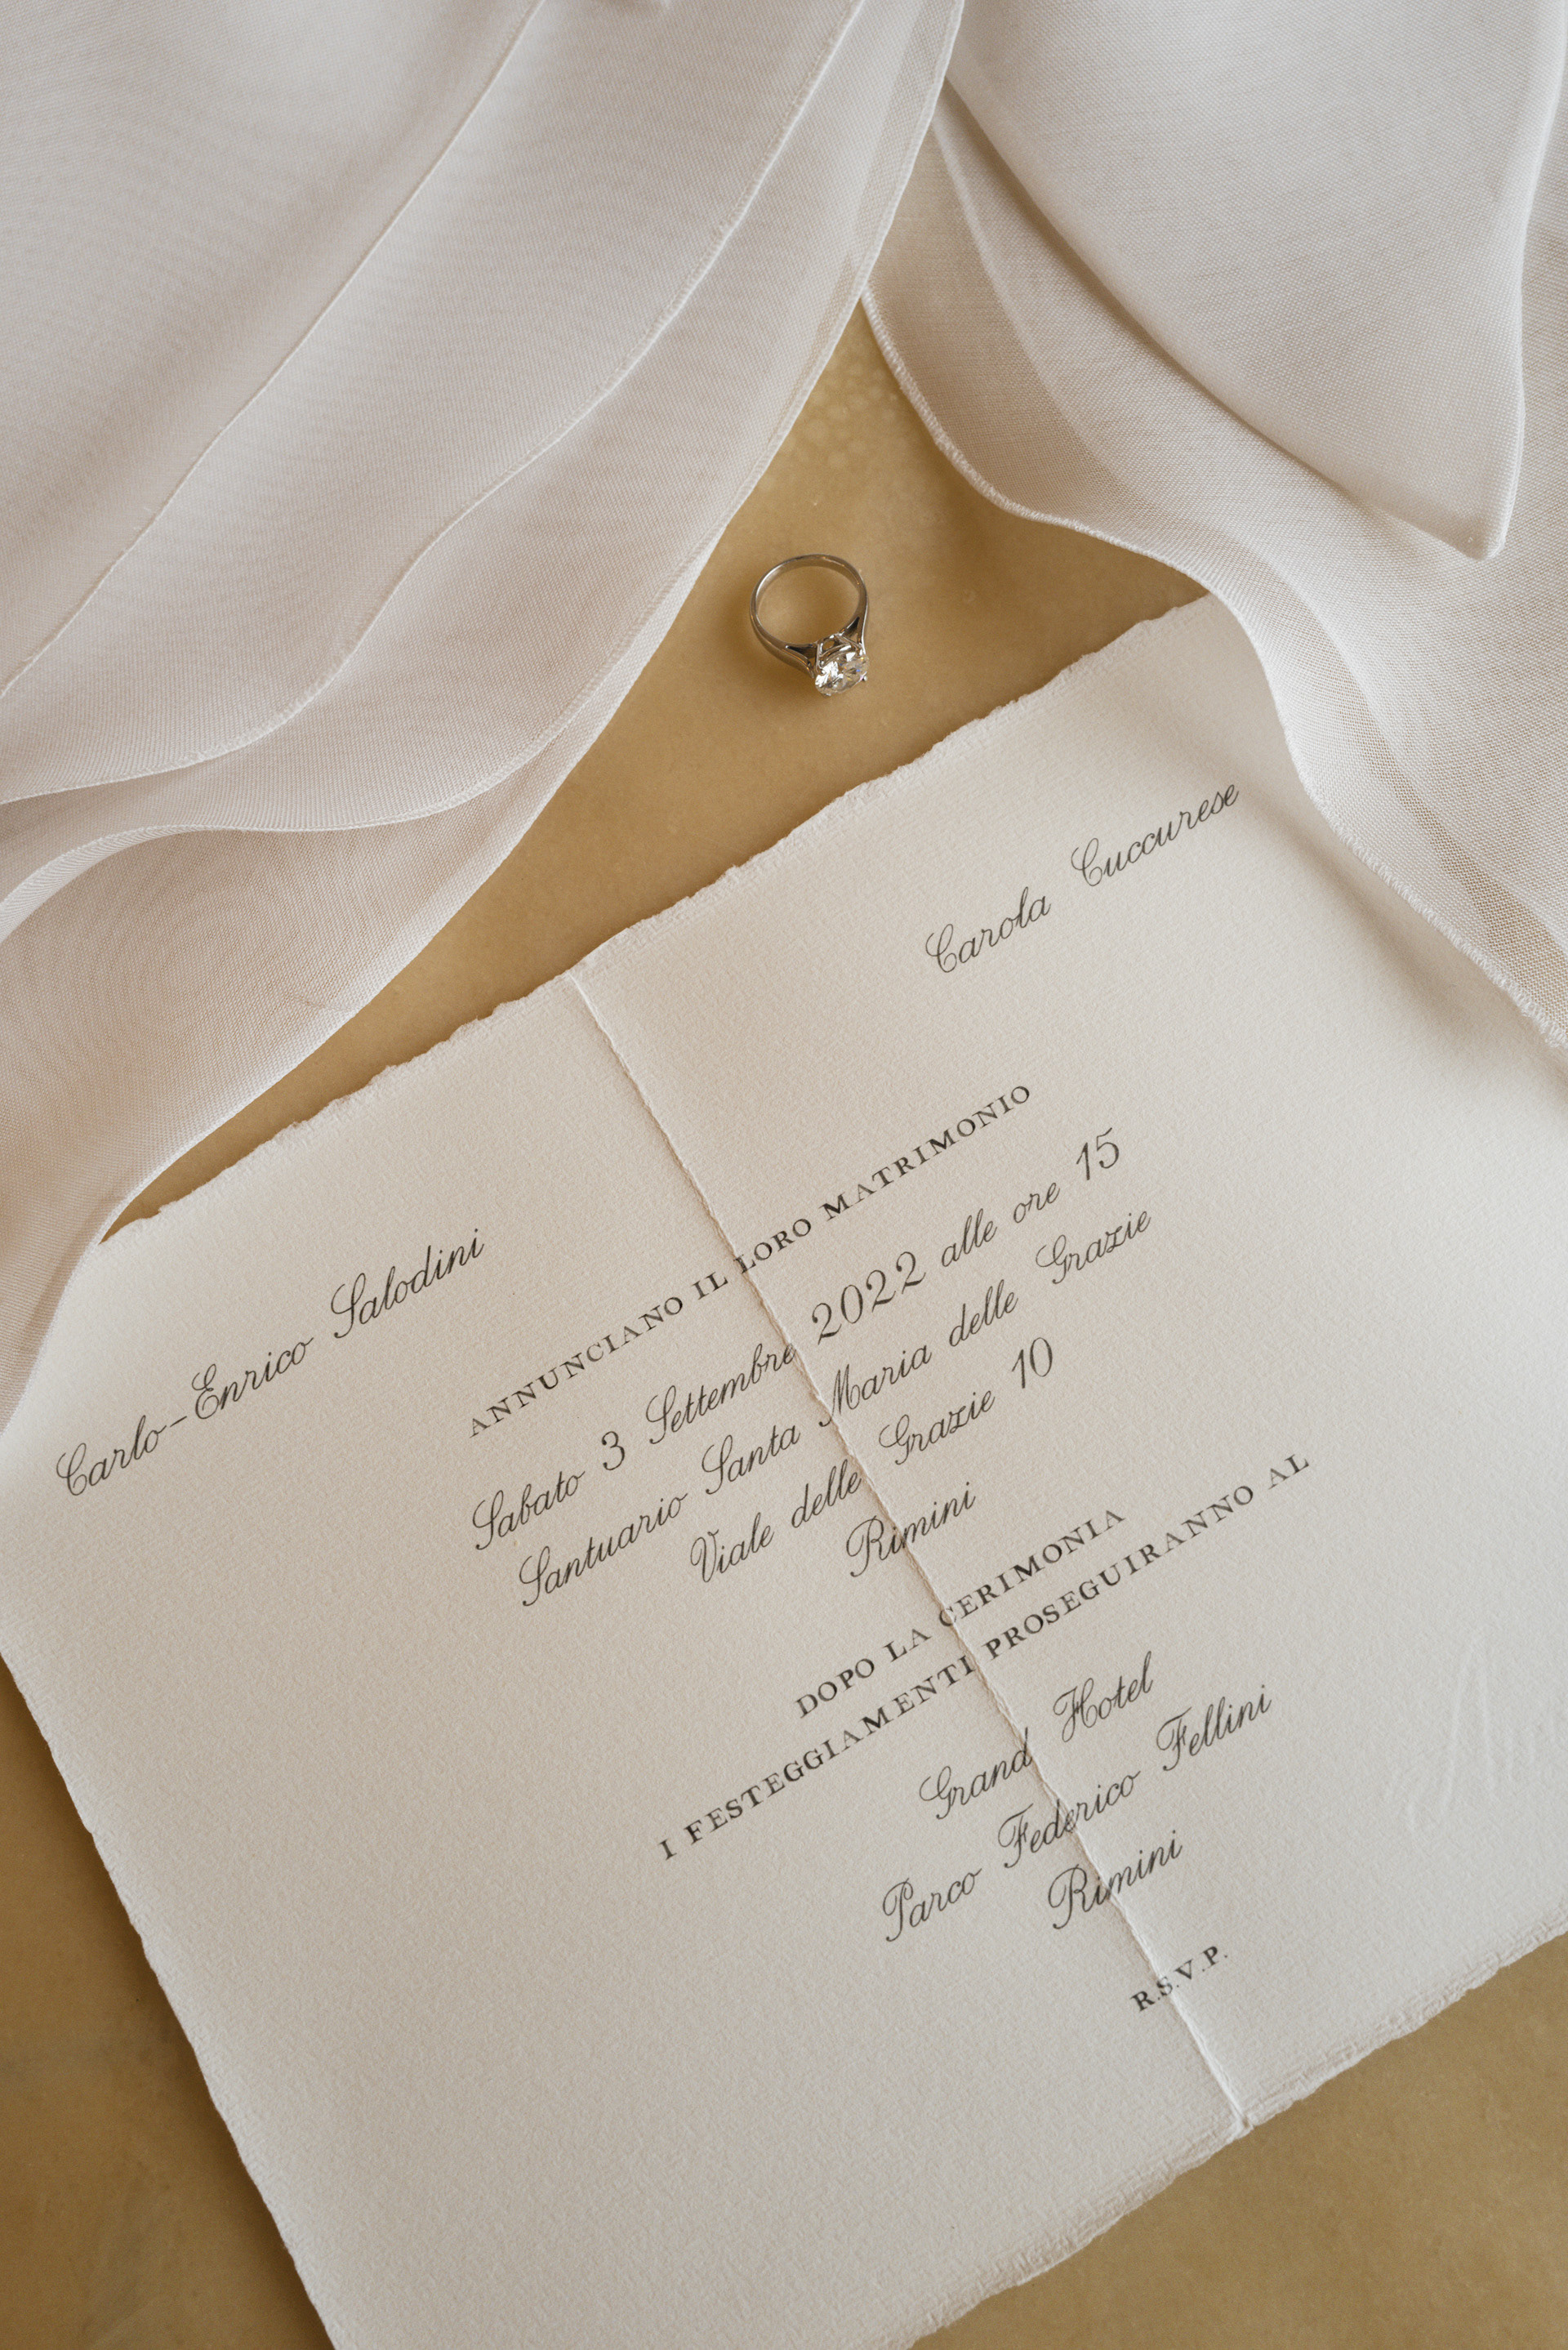 Carlo-Enrico Salodini
Carola Cuccurese
ANNUNCIANO IL LORO MATRIMONIO
Sabato 3 Settembre 2022 alle ore 15
Santuario Santa Maria delle Grazie
Viale delle Grazie 10
Rimini
DOPO LA CERIMONIA
I FESTEGGIAMENTI PROSEGUIRANNO AL
Grand Hotel
Parco Federico Fellini
Rimini
R.S.V.P.